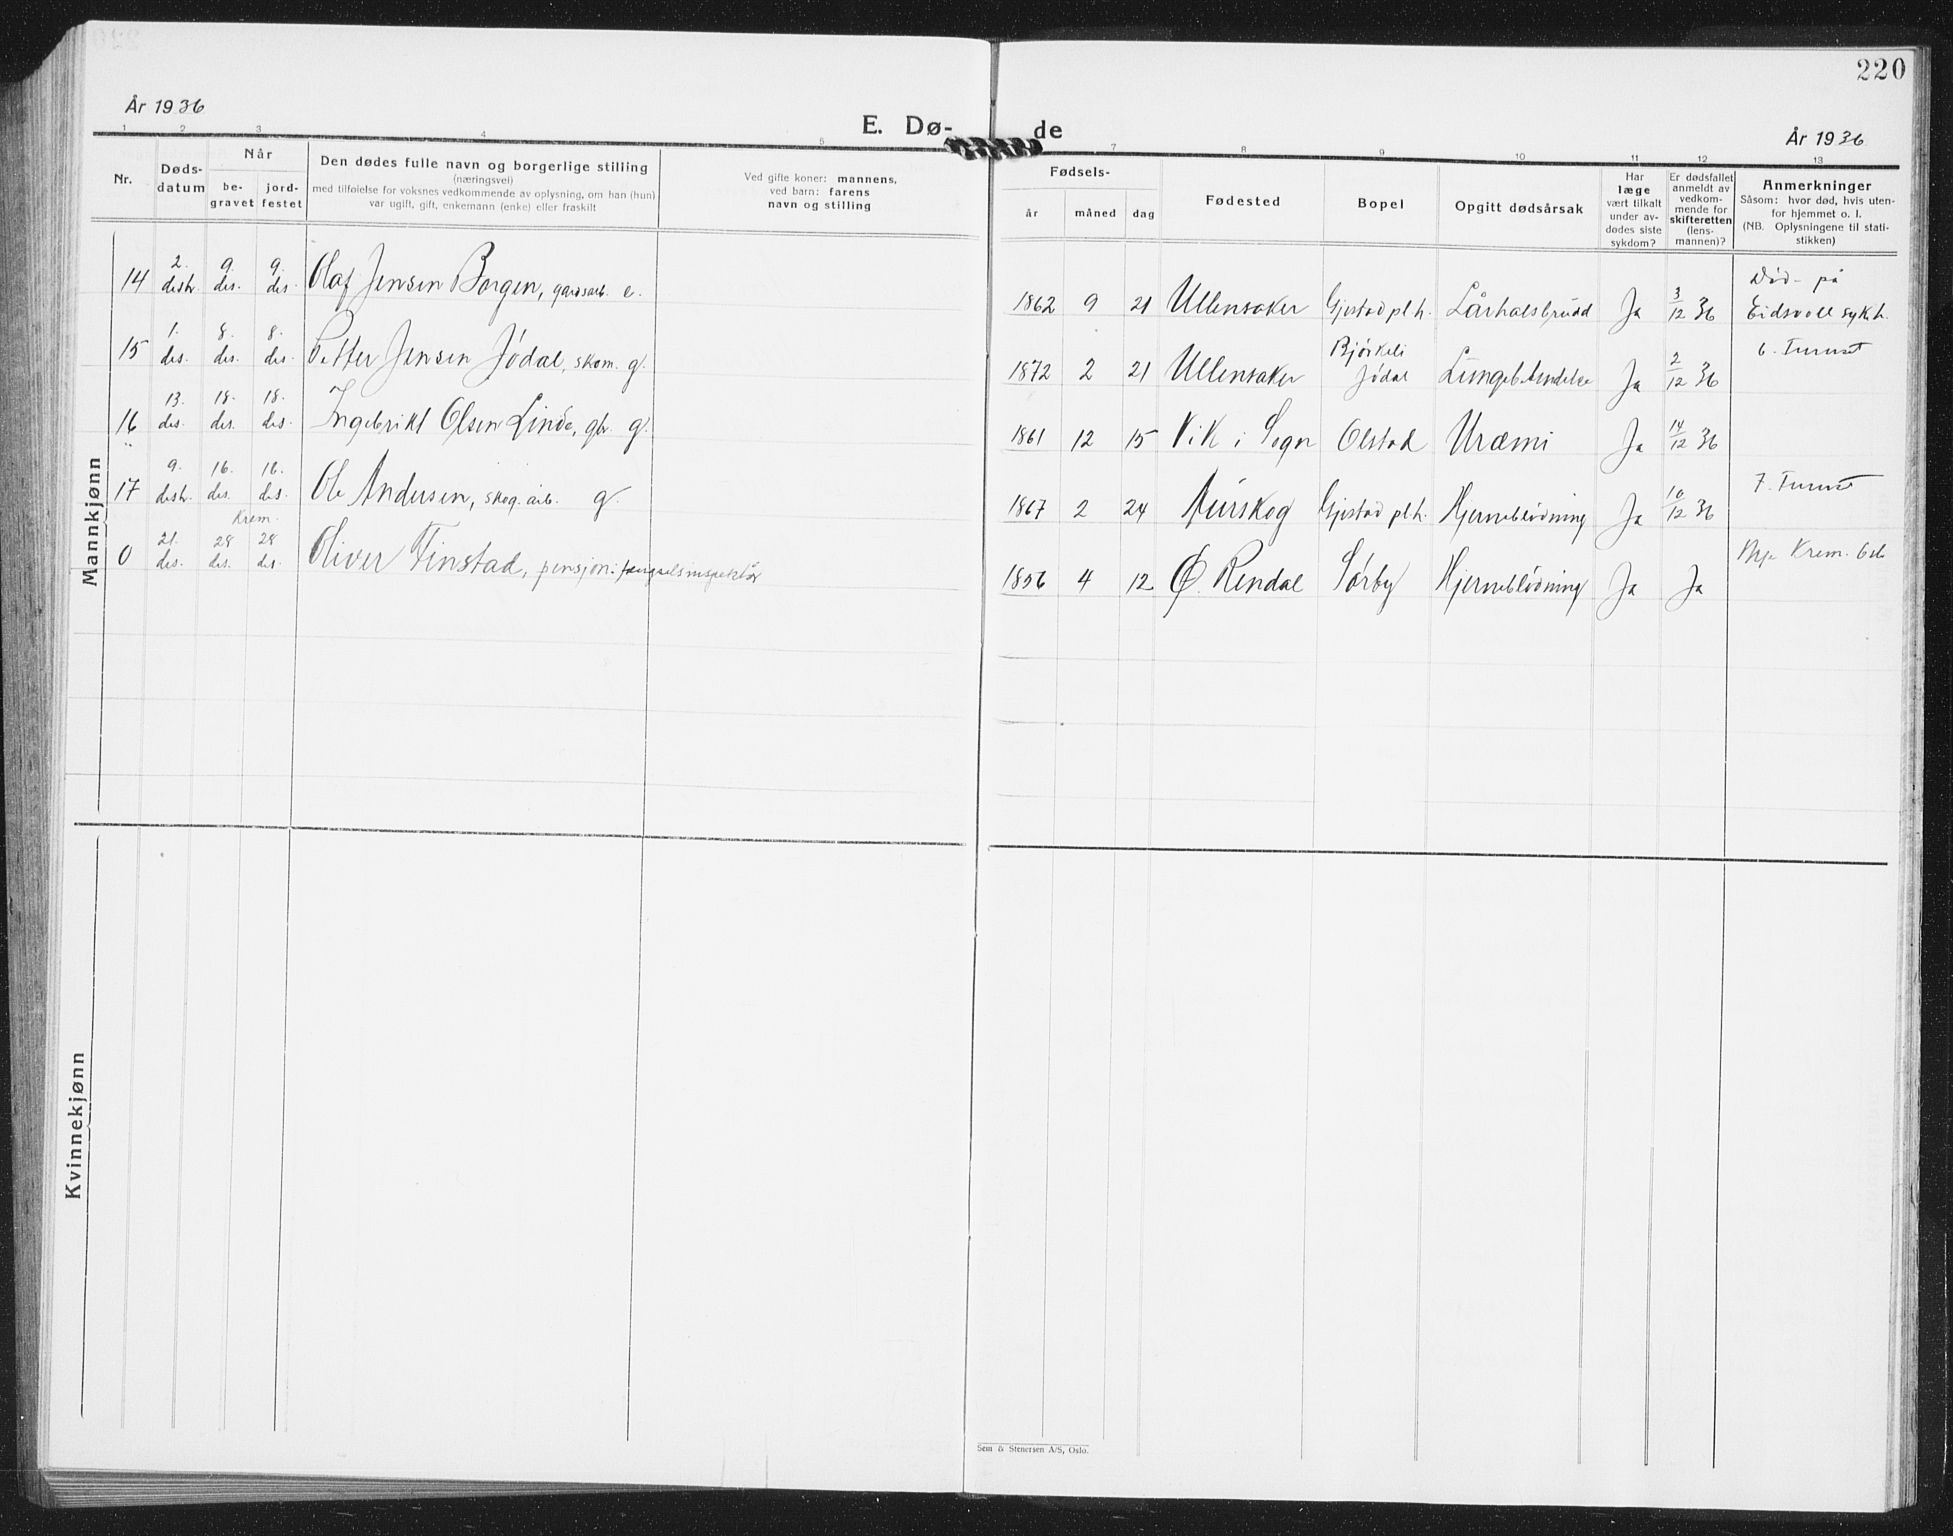 220
År 1936
E. Dø-
de
År 1936
1 2 3 4 5 7 8 9 10 11 12 13
Nr.
Døds-
datum
Når
be-
gravet
jord-
festet
Den dødes fulle navn og borgerlige stilling
(næringsvei)
med tilføielse for voksnes vedkommende av oplysning, om han (hun)
var ugift, gift, enkemann (enke) eller fraskilt
Ved gifte koner: mannens,
ved barn: farens
navn og stilling
Fødsels-
år måned dag
Fødested
Bopel
Opgitt dødsårsak
Har
læge
vært tilkalt
under av-
dødes siste
sykdom?
Er dødsfallet
anmeldt av
vedkom-
mende for
skifteretten
(lens-
mannen)?
Anmerkninger
Såsom: hvor død, hvis uten-
for hjemmet o. l.
(NB. Oplysningene til stati-
stikken)
Mannkjønn
14 2. desbr. 9. des. 9. des. Olaf Jensen Borgen, gardsarb. e. 1862 9 21 Ullensaker Gjestad plh. Lårhalsbrudd Ja 3/12 36 Død på
Eidsvoll sykh.
15 1. des. 8. des. 8. des. Petter Jensen Jødal, skom. g. 1872 2 21 Ullensaker Bjørkeli
Jødal Lungebetendelse Ja 2/12 36 6. Furuset
16 13. des. 18. des. 18. des. Ingebrikt Olsen Linde, gbr. g. 1861 12 15 Vik i Sogn Olstad Uræmi Ja 14/12 36
17 9. desbr. 16. des. 16. des. Ole Andersen, skog.arb. g. 1867 2 24 Aurskog Gjestad plh. Hjerneblødning Ja 10/12 36 7. Furuset
Krem.
0 21. des. 28 des. 28 des. Oliver Finstad, pensjon. fengselsinspektør 1856 4 12 Ø. Rendal Sørby Hjerneblødning Ja Ja Krem.
Kvinnekjønn
Sem & Stenersen A/S, Oslo.